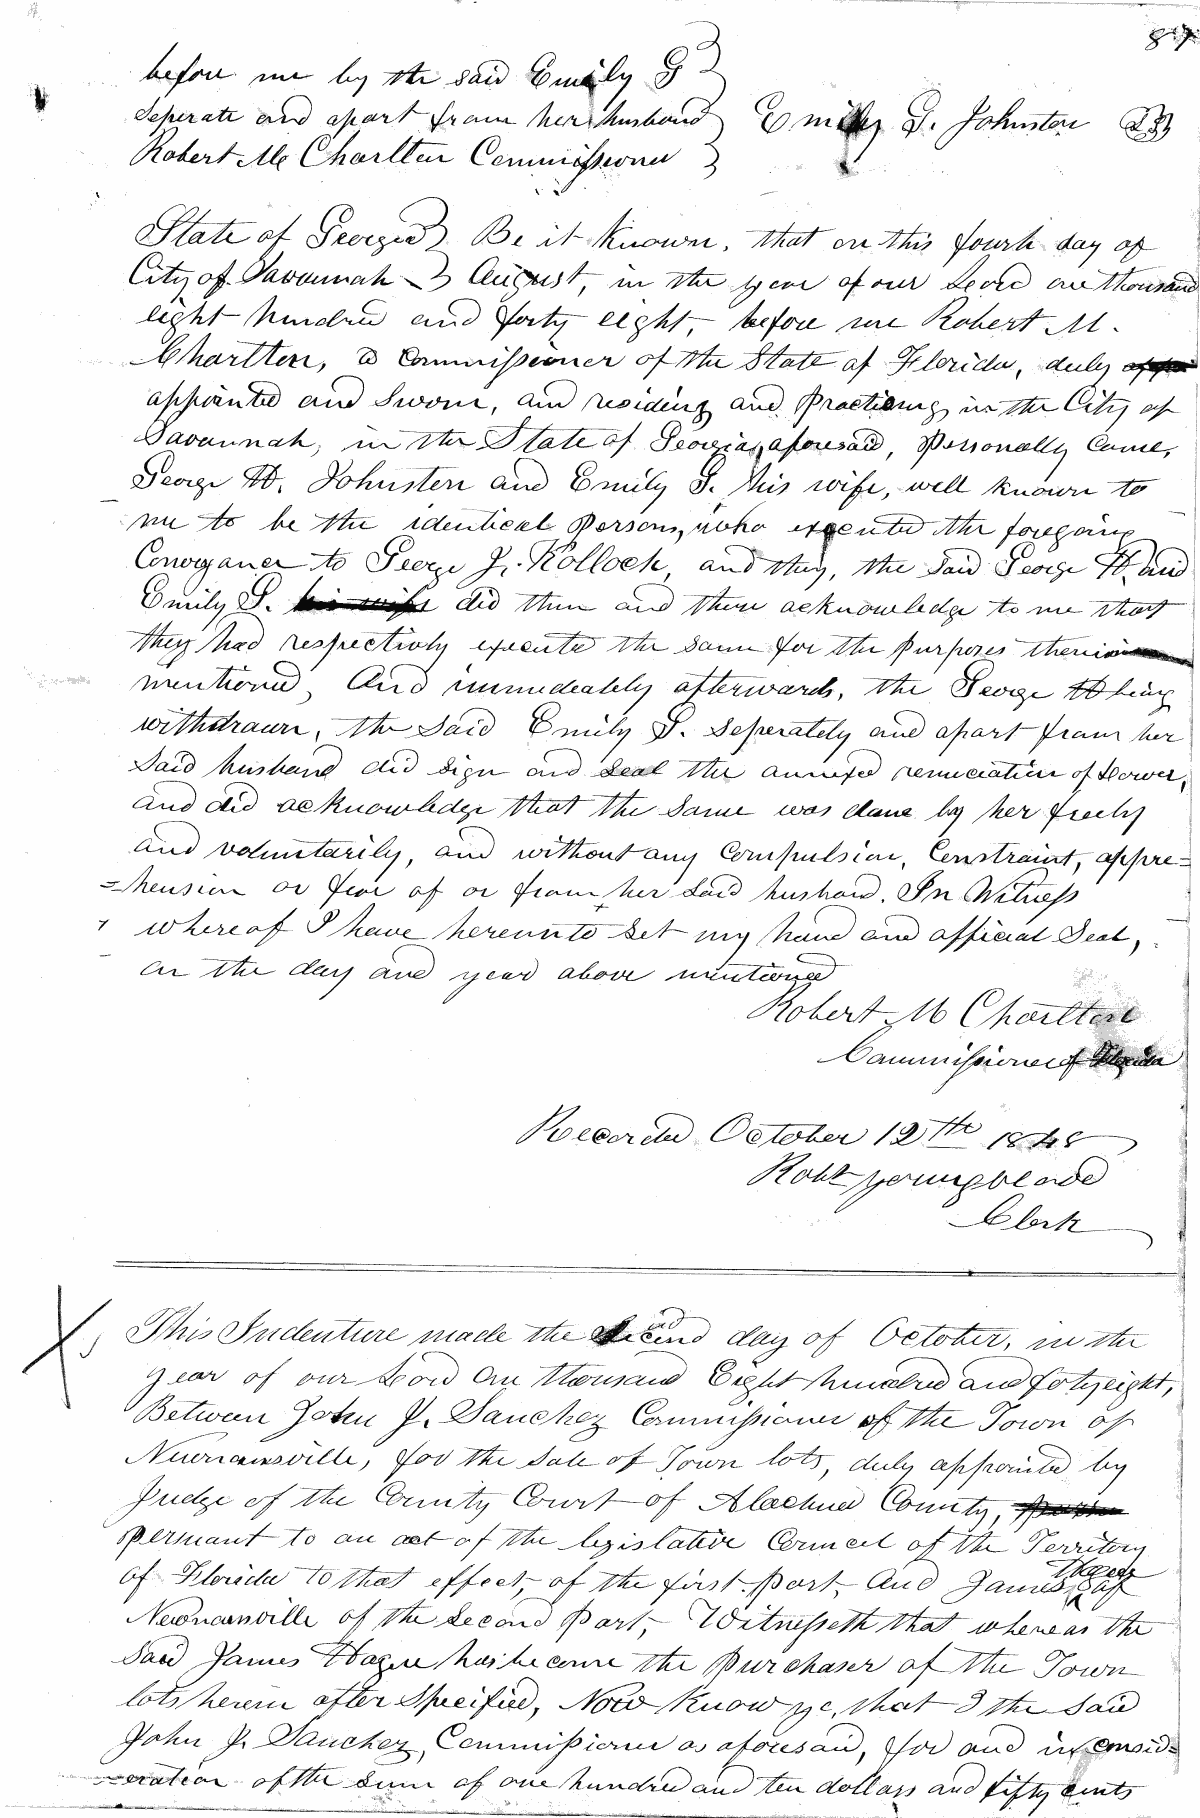 87
before me by the said Emily G
seperate and apart from her husband } Emily G. Johnston
Robert M Charlton Commissioner
State of Georgia } Be it Known, that on this fourth day of
City of Savannah } August, in the year of our Lord one thousand
eight hundred and forty eight, before me Robert M.
Charlton, a Commissioner of the State of Florida, duly
appointed and Sworn, and residing and Practicing in the City of
Savannah, in the State of Georgia, aforesaid, Personally Came,
George H. Johnston and Emily G. his wife, well known to
me to be the identical Persons, who executed the foregoing
Conveyance to George J. Kollock, and they, the Said George H. and
Emily G. his wife did then and there acknowledge to me that
they had respectivly executed the same for the Purposes therein
mentioned, And immedeately afterwards, the George H being
withdrawn, the Said Emily G. Seperately and apart from her
Said husband did Sign and Seal the annexed renuciation of Dower,
and did acknowledge that the Same was done by her freely
and voluntarily, and without any Compulsion, Constraint, appre=
=hension or fear of or from her Said husband. In Witness
whereof I have hereunto Set my hand and official Seal,
on the day and year above mentioned
Robert M Charlton
Commissioner of Florida
Recorded October 12th 1848
Robt Youngblood
Clerk
This Indenture made the Second day of October, in the
year of our Lord One thousand Eight hundred and fotyeight,
Between John J. Sanchez Commissioner of the Town of
Newnansville, for the Sale of Town lots, duly appointed by
Judge of the County Court of Alachua County,
persuant to an act of the legislative Council of the Territory
of Florida to that effect, of the first Part, And James Hague of
Newnansville of the Second Part, Witnesseth that whereas the
Said James Hague has become the Purchaser of the Town
lots herein after Specified, Now Know ye, that I the Said
John J. Sanchez, Commissioner as aforesaid, for and in consid=
=eration of the Sum of one hundred and ten dollars and fifty cents